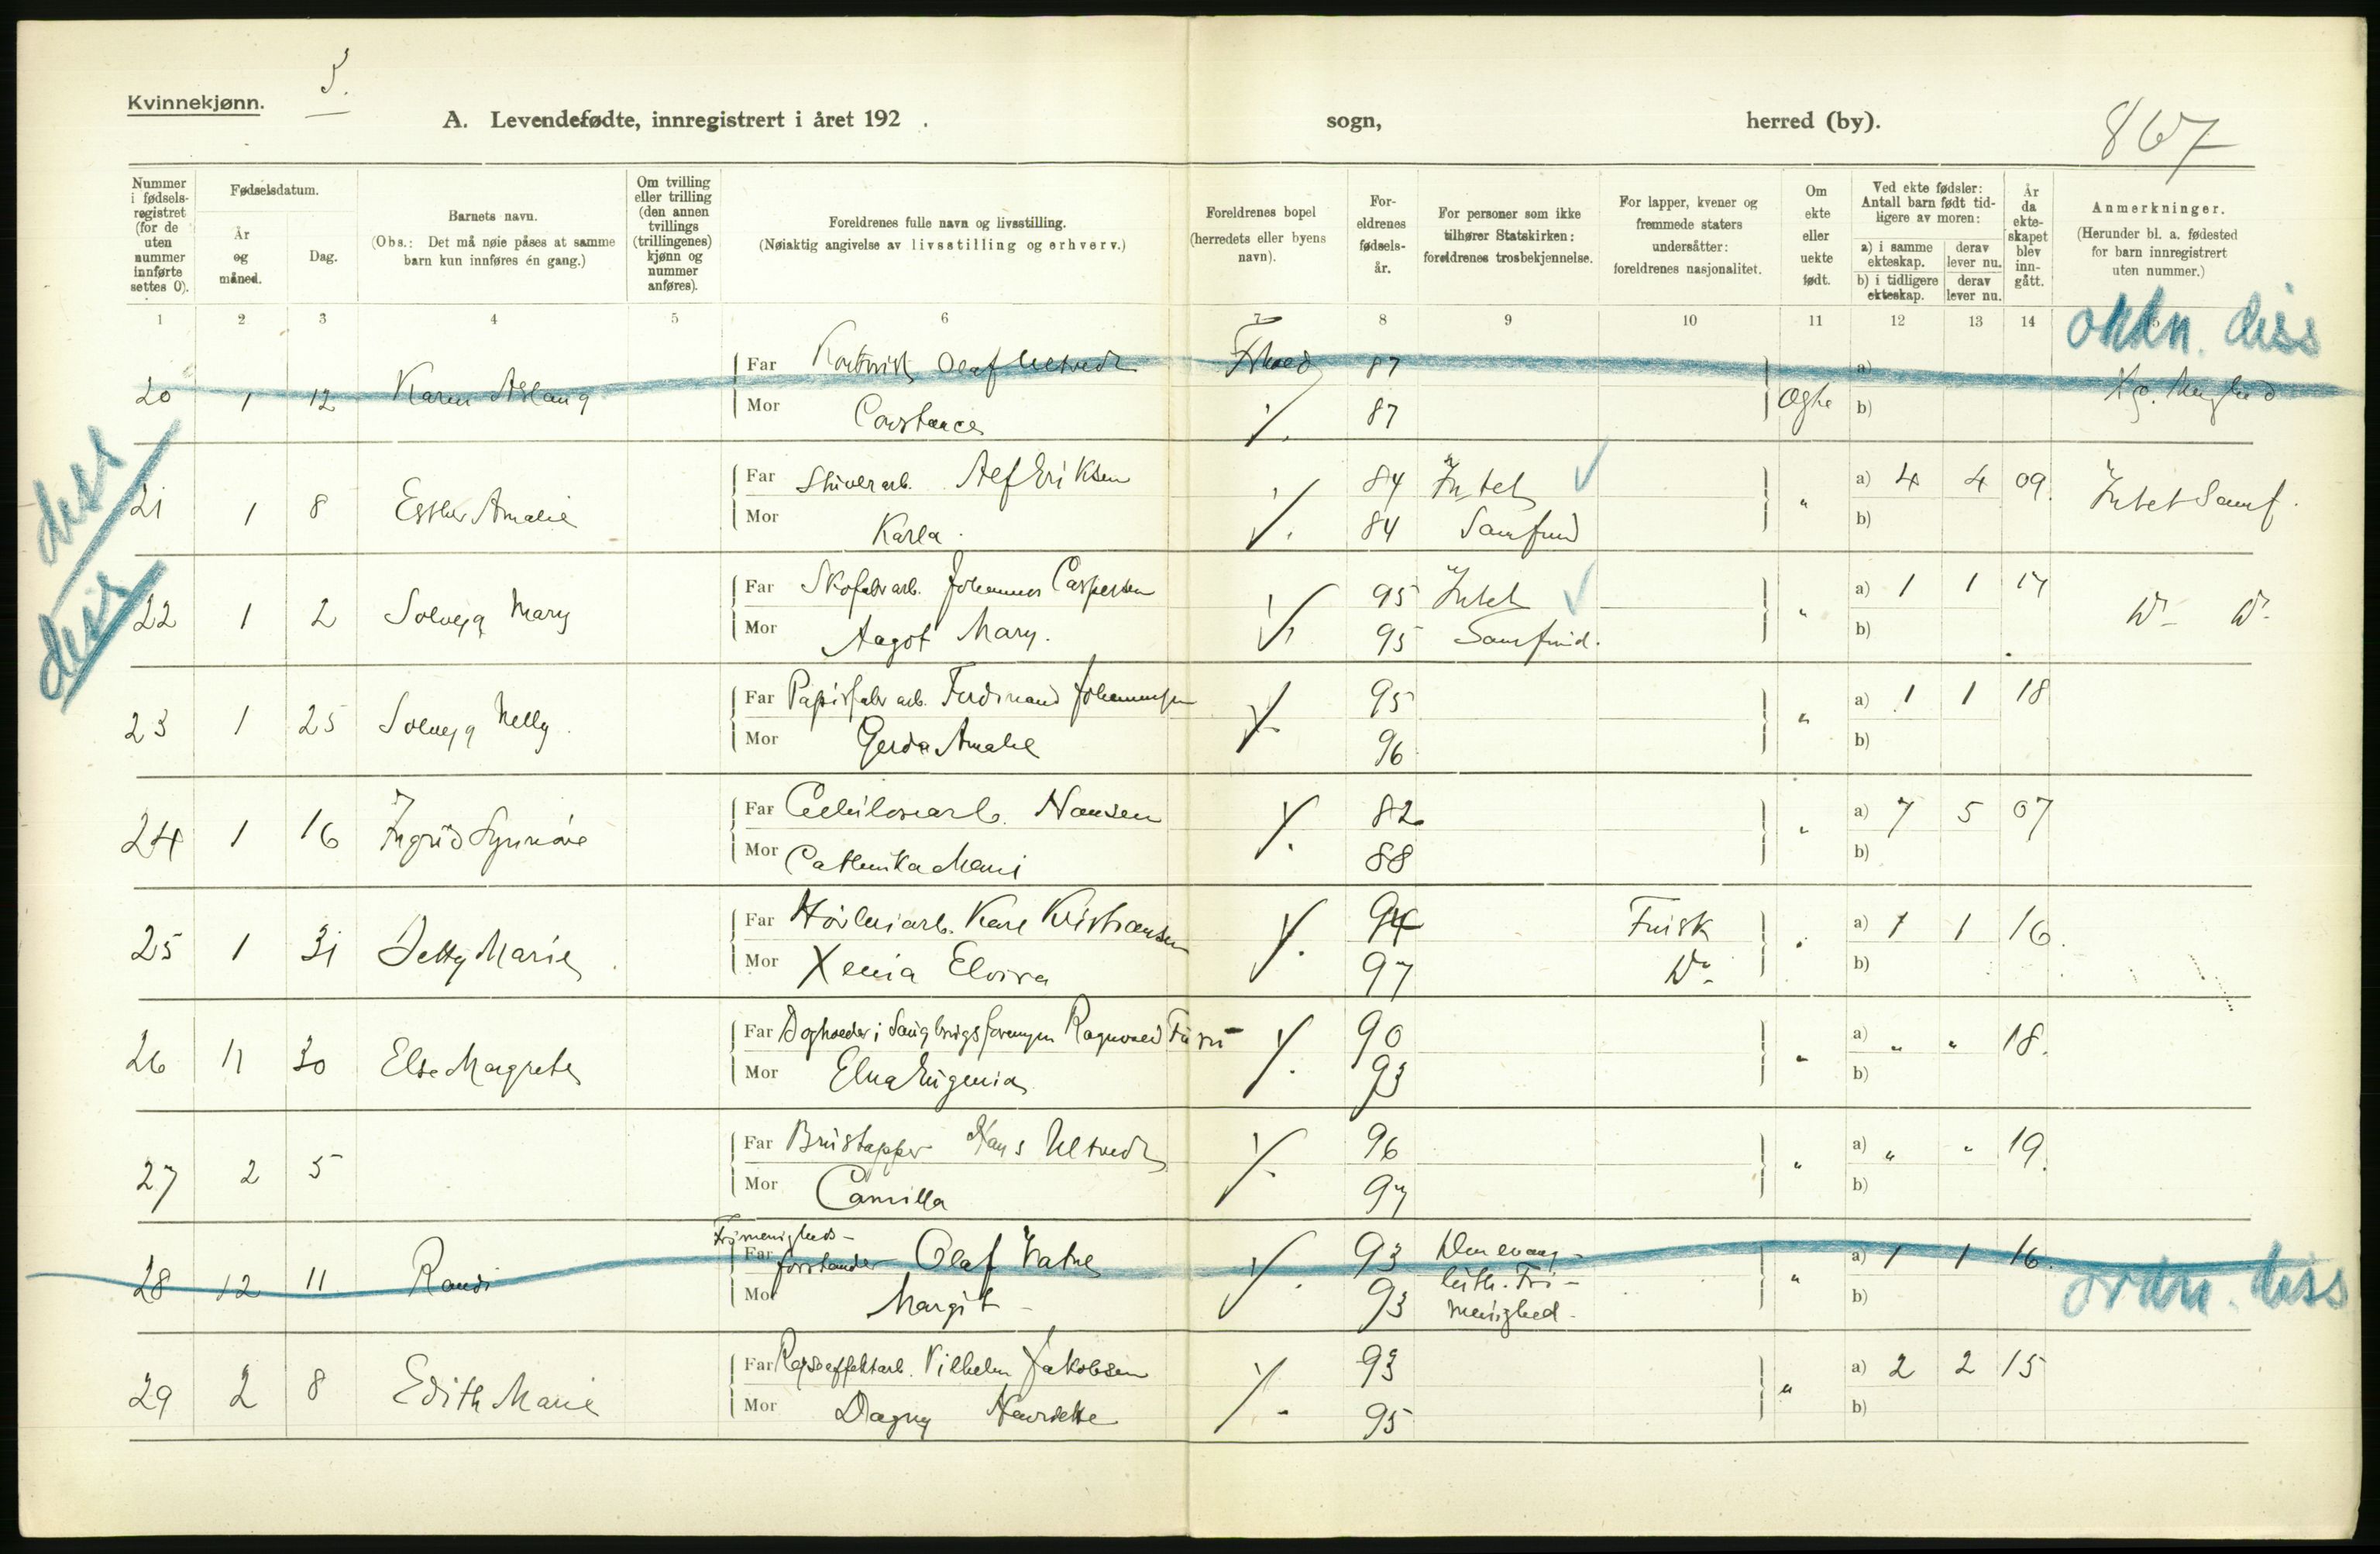 Kvinnekjønn.
5.
A. Levendefødte, innregistrert i året 192 . sogn, herred (by).
867
Nummer i fødselsregistret (for de uten nummer innførte settes 0).
Fødselsdatum.
År og måned.
Dag.
Barnets navn.
(Obs.: Det må nøie påses at samme barn kun innføres én gang.)
Om tvilling eller trilling (den annen tvillings (trillingenes) kjønn og nummer anføres).
Foreldrenes fulle navn og livsstilling.
(Nøiaktig angivelse av livsstilling og erhverv.)
Foreldrenes bopel (herredets eller byens navn).
Foreldrenes fødselsår.
For personer som ikke tilhører Statskirken: foreldrenes trosbekjennelse.
For lapper, kvener og fremmede staters undersåtter: foreldrenes nasjonalitet.
Om ekte eller uekte født.
Ved ekte fødsler: Antall barn født tidligere av moren:
a) i samme ekteskap. derav lever nu.
b) i tidligere ekteskap. derav lever nu.
År da ekteskapet blev inngått.
Anmerkninger.
(Herunder bl. a. fødested for barn innregistrert uten nummer.)
1 2 3 4 5 6 7 8 9 10 11 12 13 14 15
ordn. diss
20 1 12 Karen Aslaug Far Olaf Ultvedt 87 a)
Mor Constance 87 Ægte b)
diss
21 1 8 Esther Amalie Far Alf Eriksen 84 Intet " a) 4 4 09 Intet Samf.
Mor Karla 84 Samfund b)
diss
22 1 2 Solveig Mary Far Skofabr arb. Johannes Caspersen 95 Intet " a) 1 1 17 Do Do
Mor Aagot Mary. 95 Samfund. b)
23 1 25 Solveig Nelly Far Papirfabr arb. Ferdinand Johannesen 95 " a) 1 1 18
Mor Gerda Amalie 96 b)
24 1 16 Ingrid Synnøve Far Cellulosearb. Hansen 82 " a) 7 5 07
Mor Cathinka Marie 88 b)
25 1 31 Jetty Marie Far Høvleriarb. Karl Kristiansen 94 Finsk " a) 1 1 16.
Mor Xenia Elvira 97 Do b)
26 11 30 Else Margrete Far Ragnvald Furu 90 " a) " " 18.
Mor Elna Eugenia 93 b)
27 2 5 Far Brustapper Hans Ultvedt 96 " a) " " 19.
Mor Camilla 97 b)
Frimenigheds-
28 12 11 Randi Far forstander Olaf Vatne 93 Den evang- a) 1 1 16.
Mor Margit 93 luth. Fri- menighed. " b) ordn. diss
29 2 8 Edith Marie Far Rejseeffektarb. Vilhelm Jakobsen 93 " a) 2 2 15
Mor Dagny Henriette 95 b)